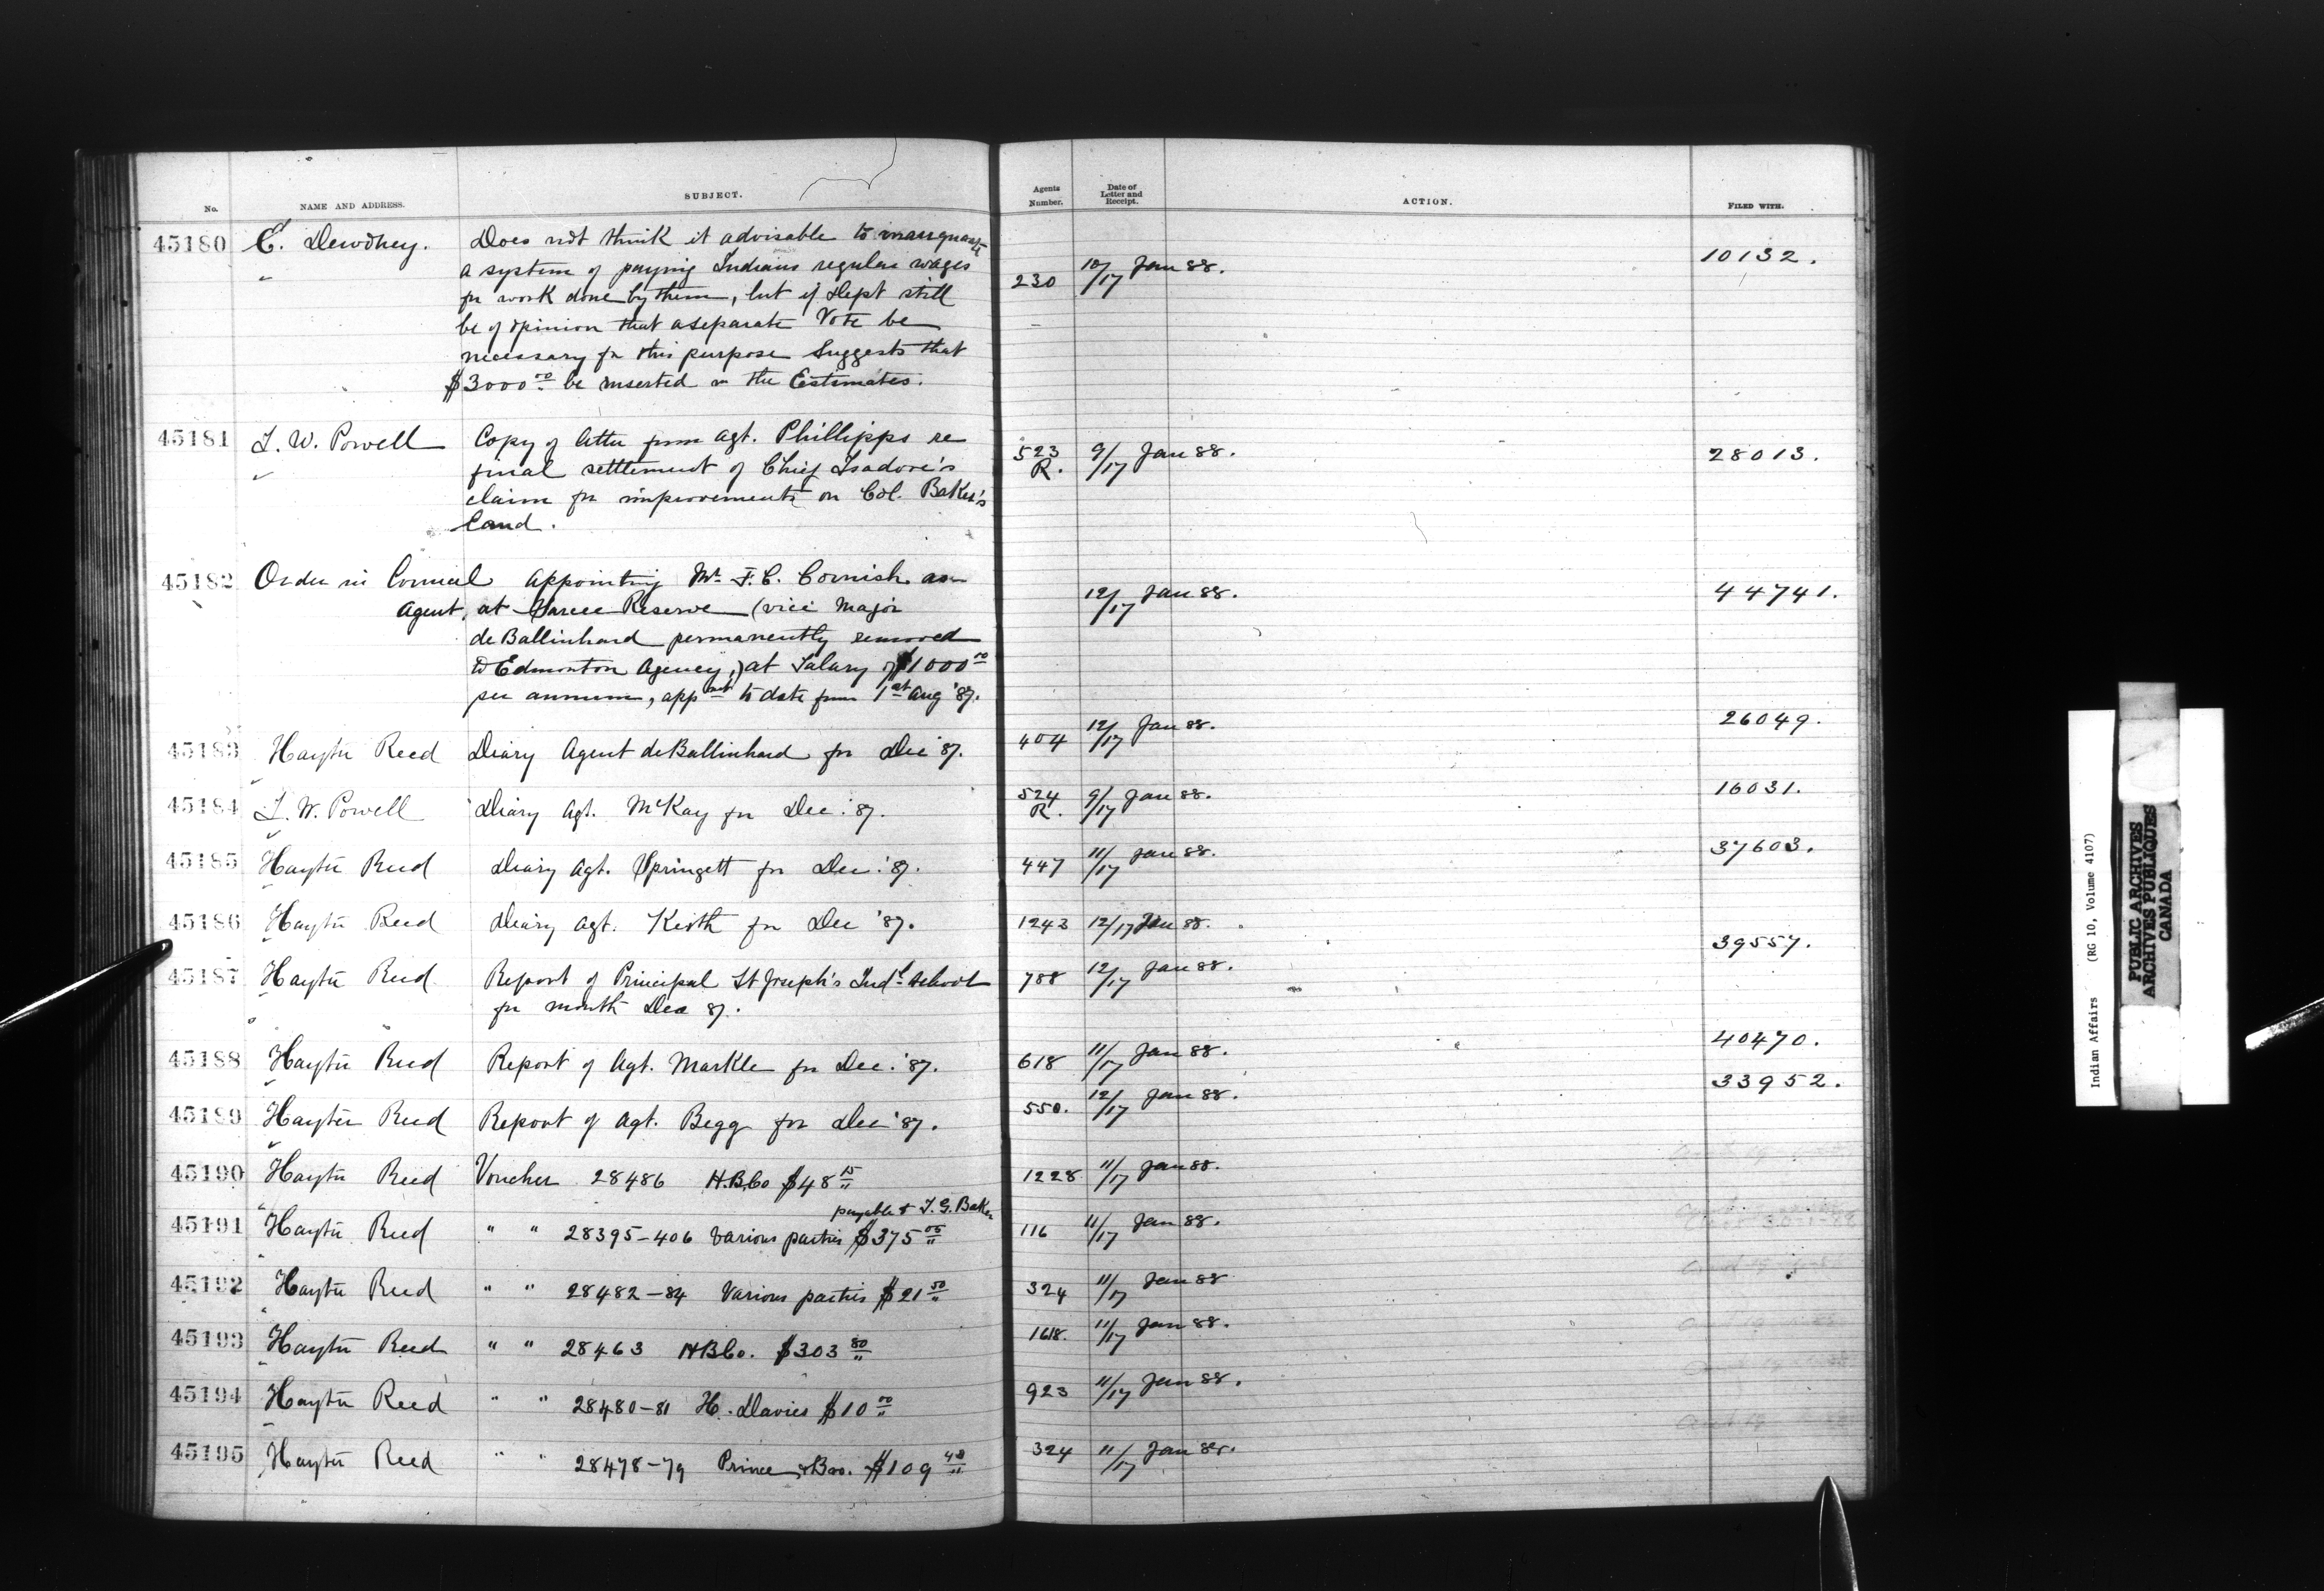 No. NAME AND ADDRESS. SUBJECT. Agents Number. Date of Letter and Receipt. ACTION. FILED WITH.
45180 E. Dewdney. Does not think it advisable to inaugurate 10132.
a system of paying Indians regular wages 230 10/17 Jan 88.
for work done by them, but if Dept still
be of opinion that a separate Vote be
necessary for this purpose Suggests that
$3000 00 be inserted in the Estimates.
45181 I. W. Powell Copy of letter from Agt. Phillipps re 523 R. 9/17 Jan 88. 28013.
final settlement of Chief Isadore's
claim for improvements on Col. Baker's
land.
45182 Order in Council appointing Mr. F. C. Cornish as 12/17 Jan 88. 44741.
Agent, at Sarcee Reserve (vice Major
de Ballinhard permanently removed
to Edmonton Agency,) at Salary of $1000 00
per annum, appmt to date from 1st Aug '87.
45183 Hayter Reed Diary Agent de Ballinhard for Dec '87. 404 12/17 Jan 88. 26049.
45184 I. W. Powell Diary Agt. McKay for Dec. '87. 524 R. 9/17 Jan 88. 16031.
45185 Hayter Reed Diary Agt. Springett for Dec. '87. 447 11/17 Jan 88. 37603.
45186 Hayter Reed Diary Agt. Keith for Dec '87. 1243 12/17 Jan 88. 39557.
45187 Hayter Reed Report of Principal St Joseph's Indl School 788 12/17 Jan 88.
for month Dec 87.
45188 Hayter Reed Report of Agt. Markle for Dec. '87. 618 11/17 Jan 88. 40470.
45189 Hayter Reed Report of Agt. Begg for Dec '87. 550. 12/17 Jan 88. 33952.
45190 Hayter Reed Voucher 28486 H.B.Co $48 15 1228 11/17 Jan 88.
payable to I. G. Baker
45191 Hayter Reed " " 28395-406 Various parties $375 05 116 11/17 Jan 88.
45192 Hayter Reed " " 28482-84 Various parties $21 50 324 11/17 Jan 88
45193 Hayter Reed " " 28463 HBCo. $303 80 1618. 11/17 Jan 88.
45194 Hayter Reed " " 28480-81 H. Davies $10 00 923 11/17 Jan 88.
45195 Hayter Reed " " 28478-79 Prince & Bro. $109 48 324 11/17 Jan 88.
Indian Affairs (RG 10, Volume 4107)
PUBLIC ARCHIVES
ARCHIVES PUBLIQUES
CANADA